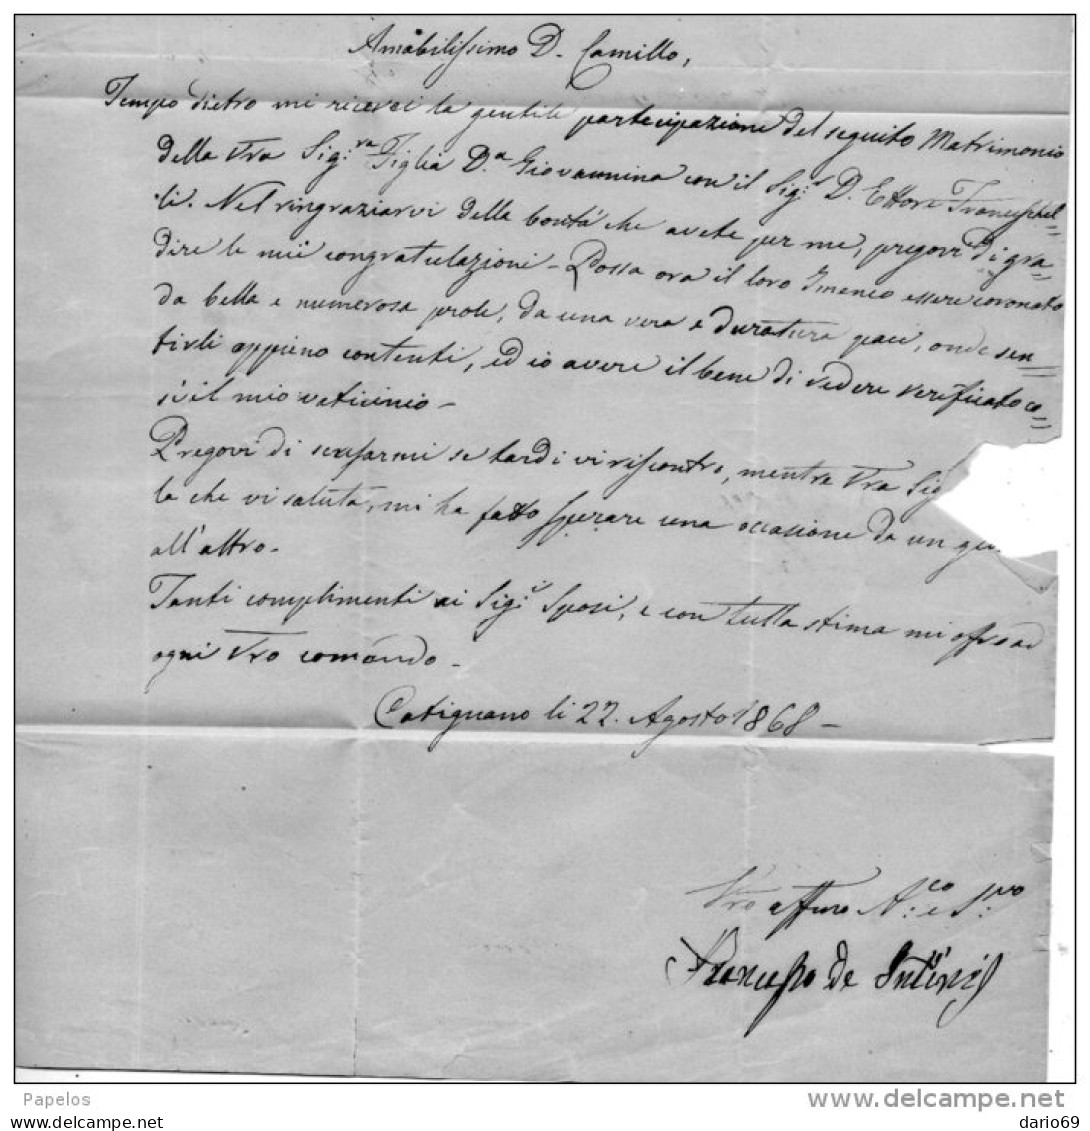 Amabilissimo D. Camillo,
Tempo dietro mi ricevei la gentile partecipazione del seguito Matrimonio
della Vra Sig:ra Figlia D.a Giovannina con il Sig.r D. Ettore
li. Nel ringraziarvi della bontà che avete per me, pregovi di gra=
dire le mie congratulazioni - Possa ora il loro Imeneo essere coronato
da bella e numerosa prole, da una vera e duratura pace, onde sen=
tirli appieno contenti, ed io avere il bene di vedere verificato co=
sì il mio vaticinio -
Pregovi di scusarmi se tardi vi riscontro, mentre Vra Sig
la che vi saluta, mi ha fatto sperare una occasione da un
all'altro -
Tanti complimenti ai Sig:i Sposi, e con tutta stima mi offro ad
ogni Vro comando -
Catignano li 22. Agosto 1868 -
Vro affmo A:co e S:
Francesco de
Papelos
www.delcampe.net
dario69